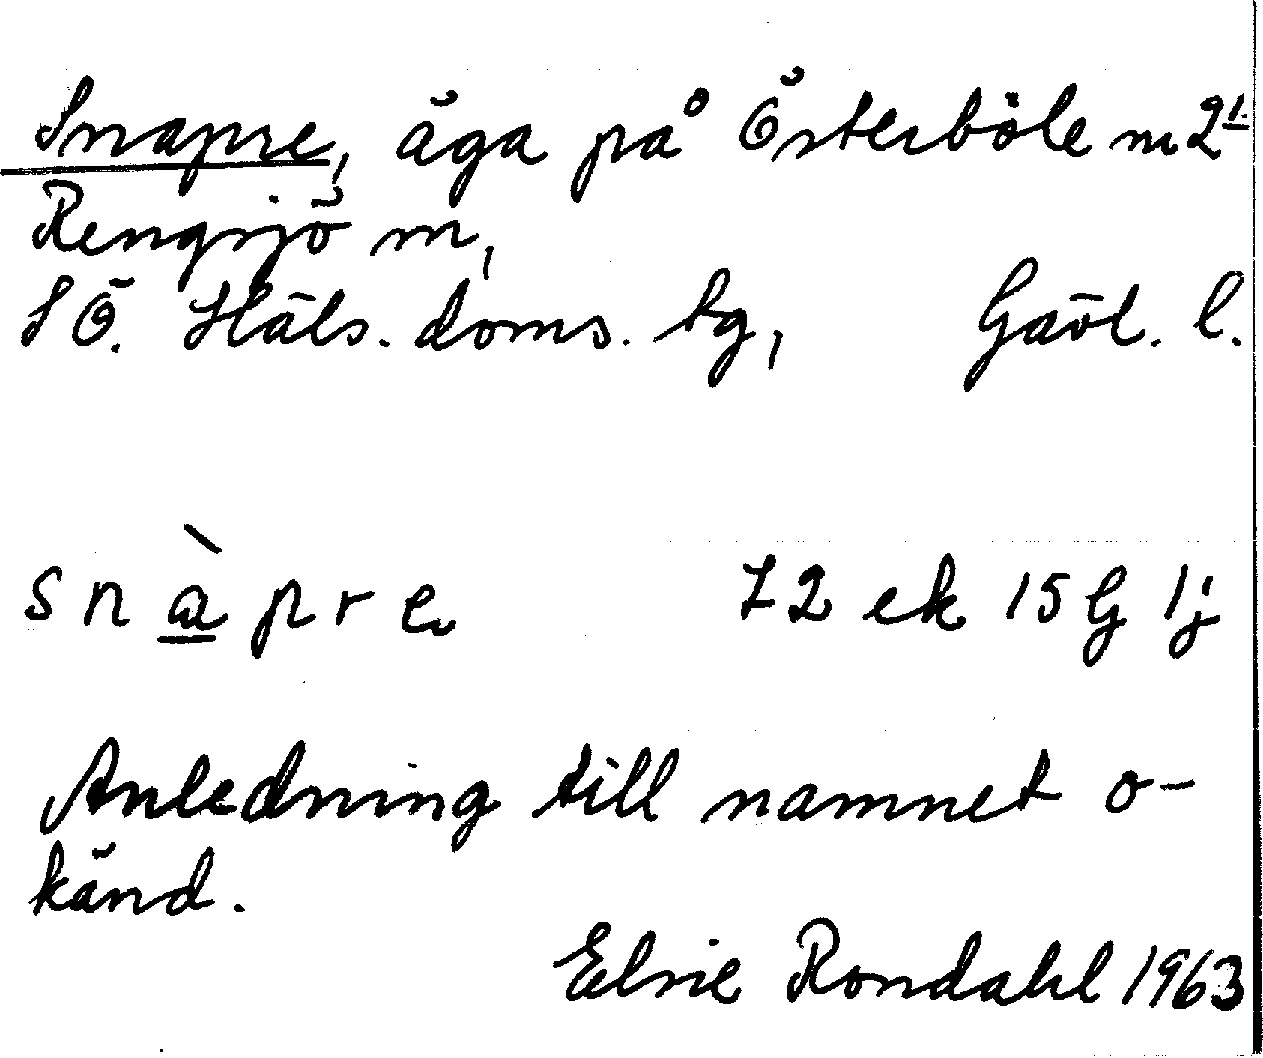 Snapre, äga på Österböle nr 2¹
Rengsjö sn,
SÖ. Häls. doms. tg, Gävl. l.
snàpre 72 ek 15 G 1j
Anledning till namnet o-
känd.
Elsie Rondahl 1963